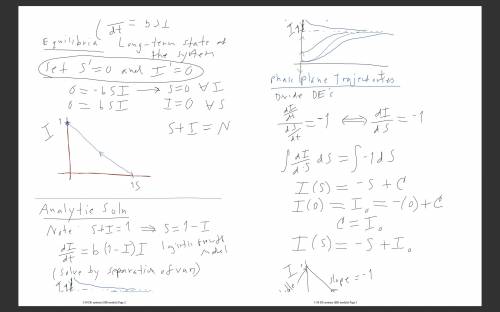 dt = bSI
Equilibria Long-term state of
the system
Set S'=0 and I'=0
0 = -bSI → S=0 ∀ I
0 = bSI I=0 ∀ S
I 1 S+I=N
1 S
Analytic Soln
Note: S+I=1 ⇒ S=1-I
dI/dt = b(1-I)I logistic growth
model
(solve by separation of var)
I 1
I 1
Phase Plane Trajectories
Divide DE's
dI/dt / dS/dt = -1 ⟺ dI/dS = -1
∫ dI/dS dS = ∫ -1 dS
I(S) = -S + C
I(0) = I₀ = -(0) + C
C = I₀
I(S) = -S + I₀
I slope = -1